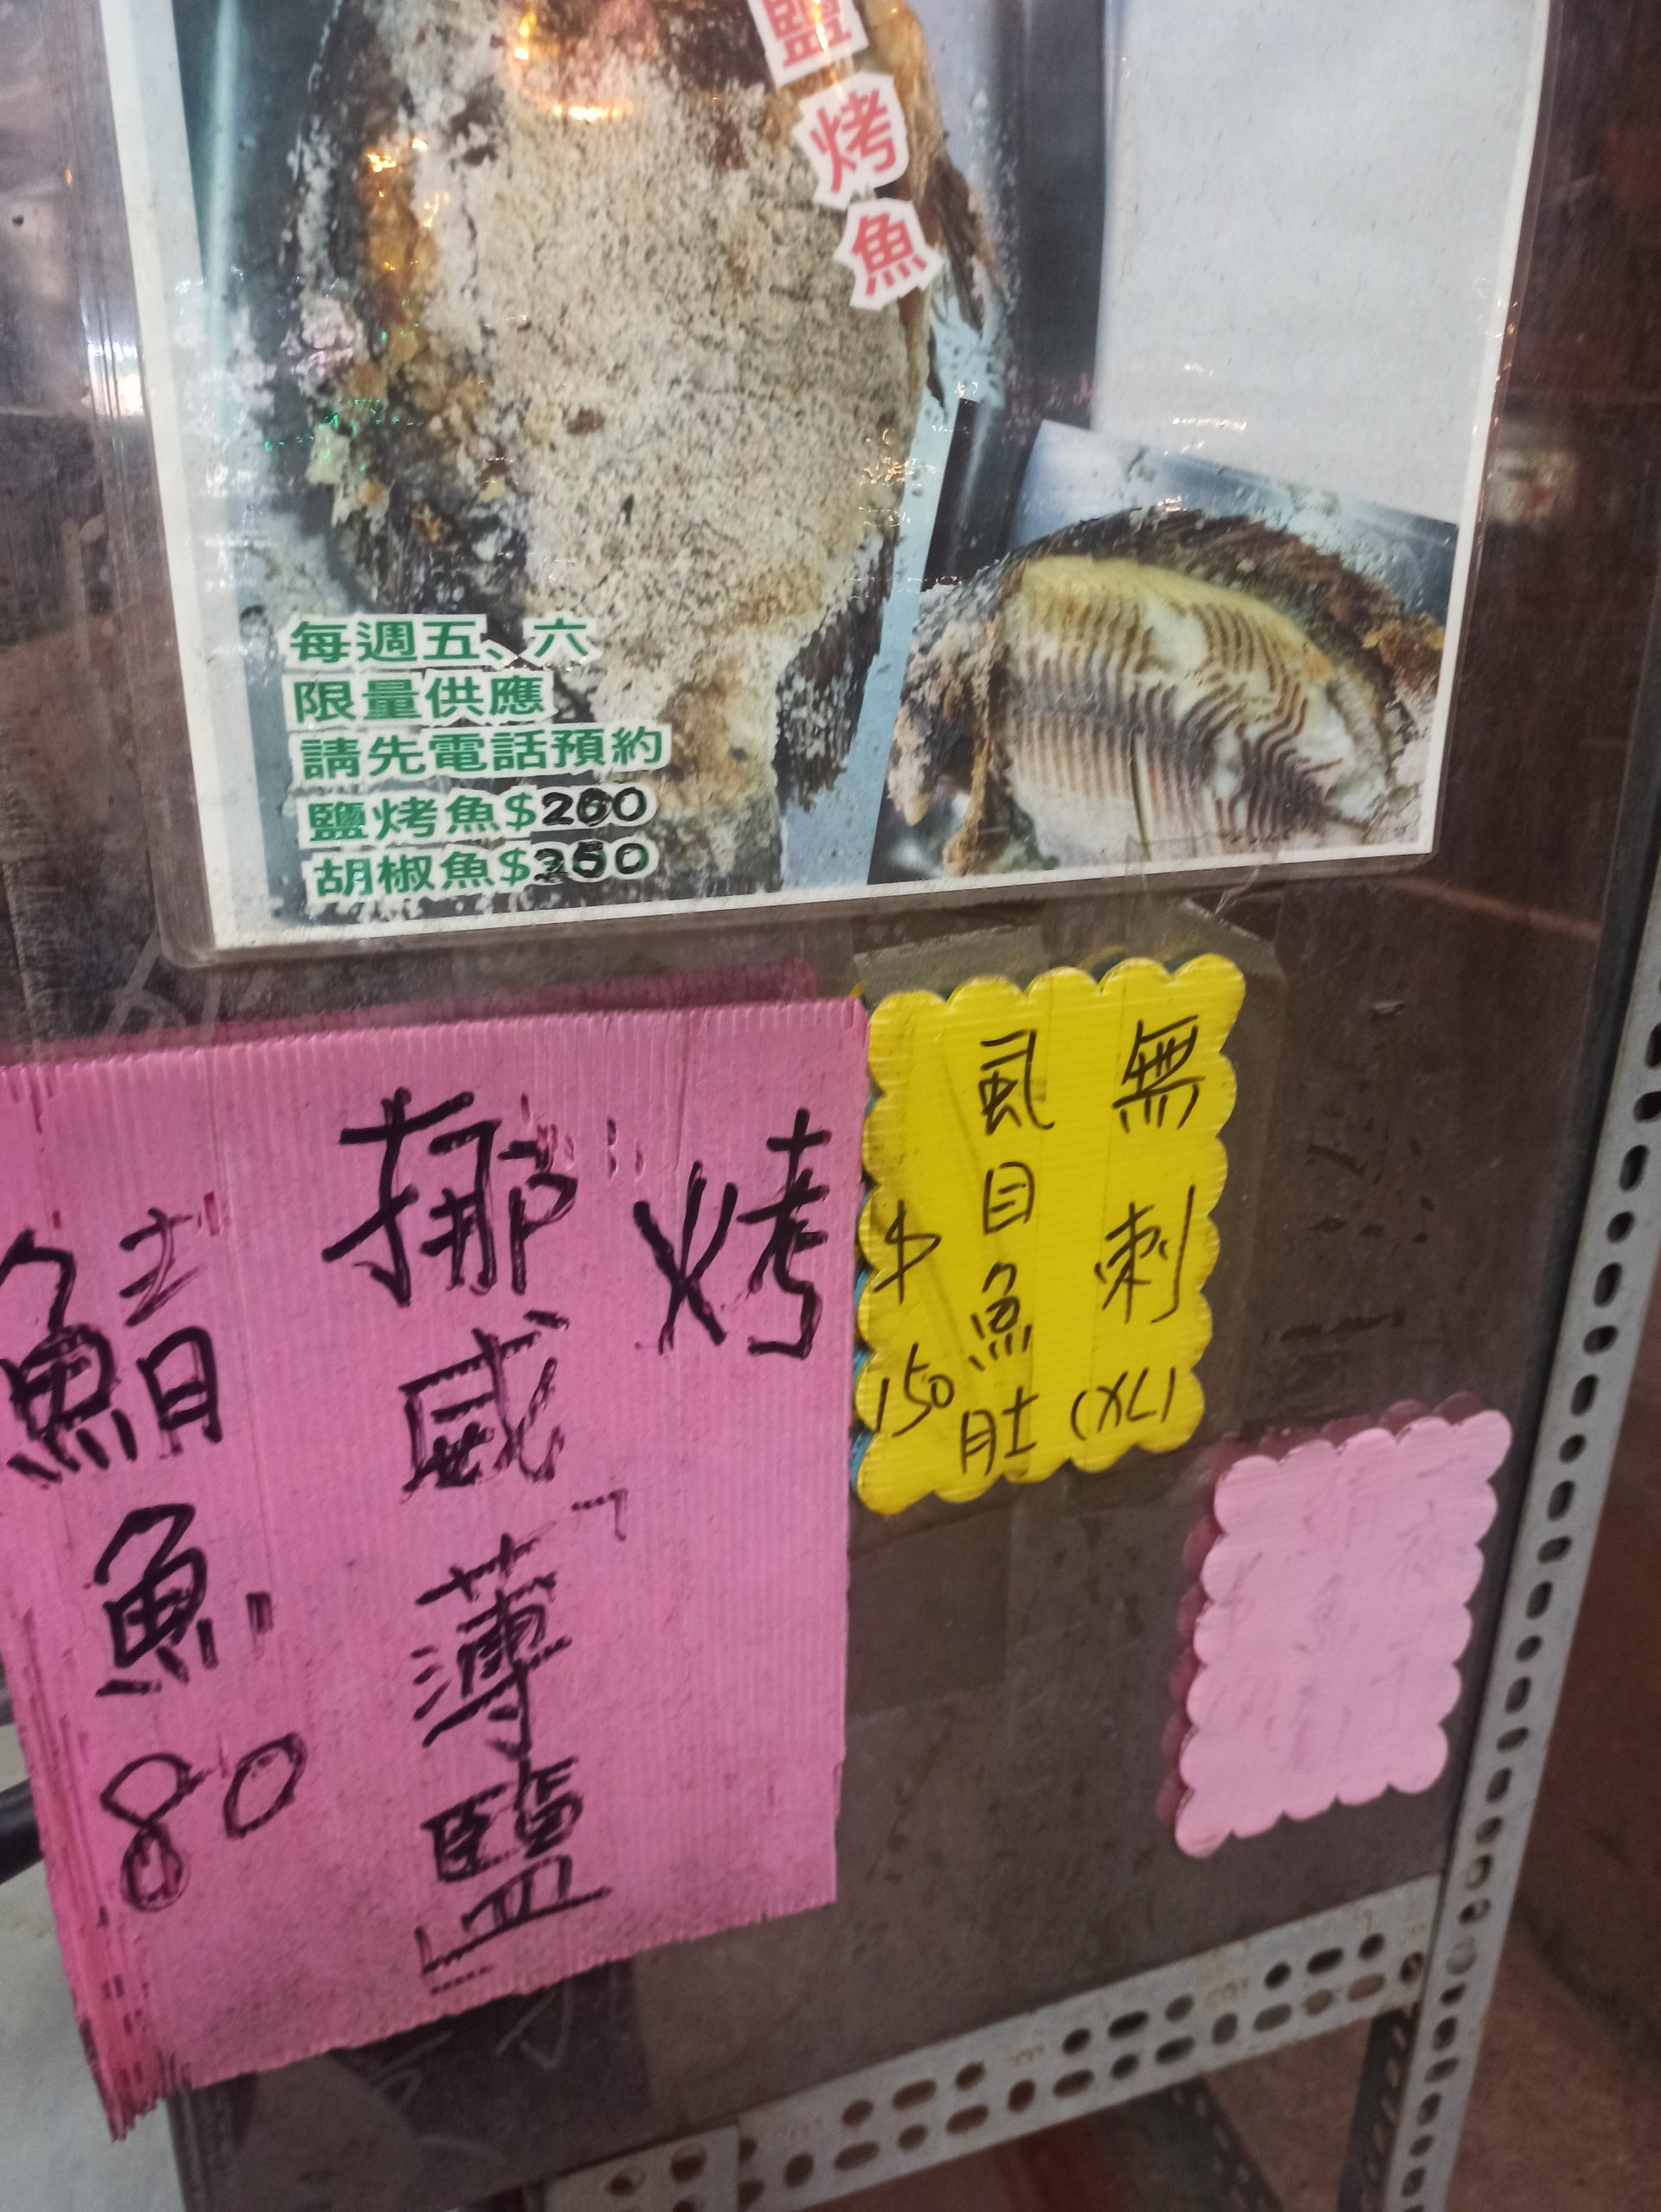 鹽烤魚
每週五、六
限量供應
請先電話預約
鹽烤魚$260
胡椒魚$350
無刺(XL)
虱目魚肚
$150
烤
挪威「薄鹽」
鯖魚80